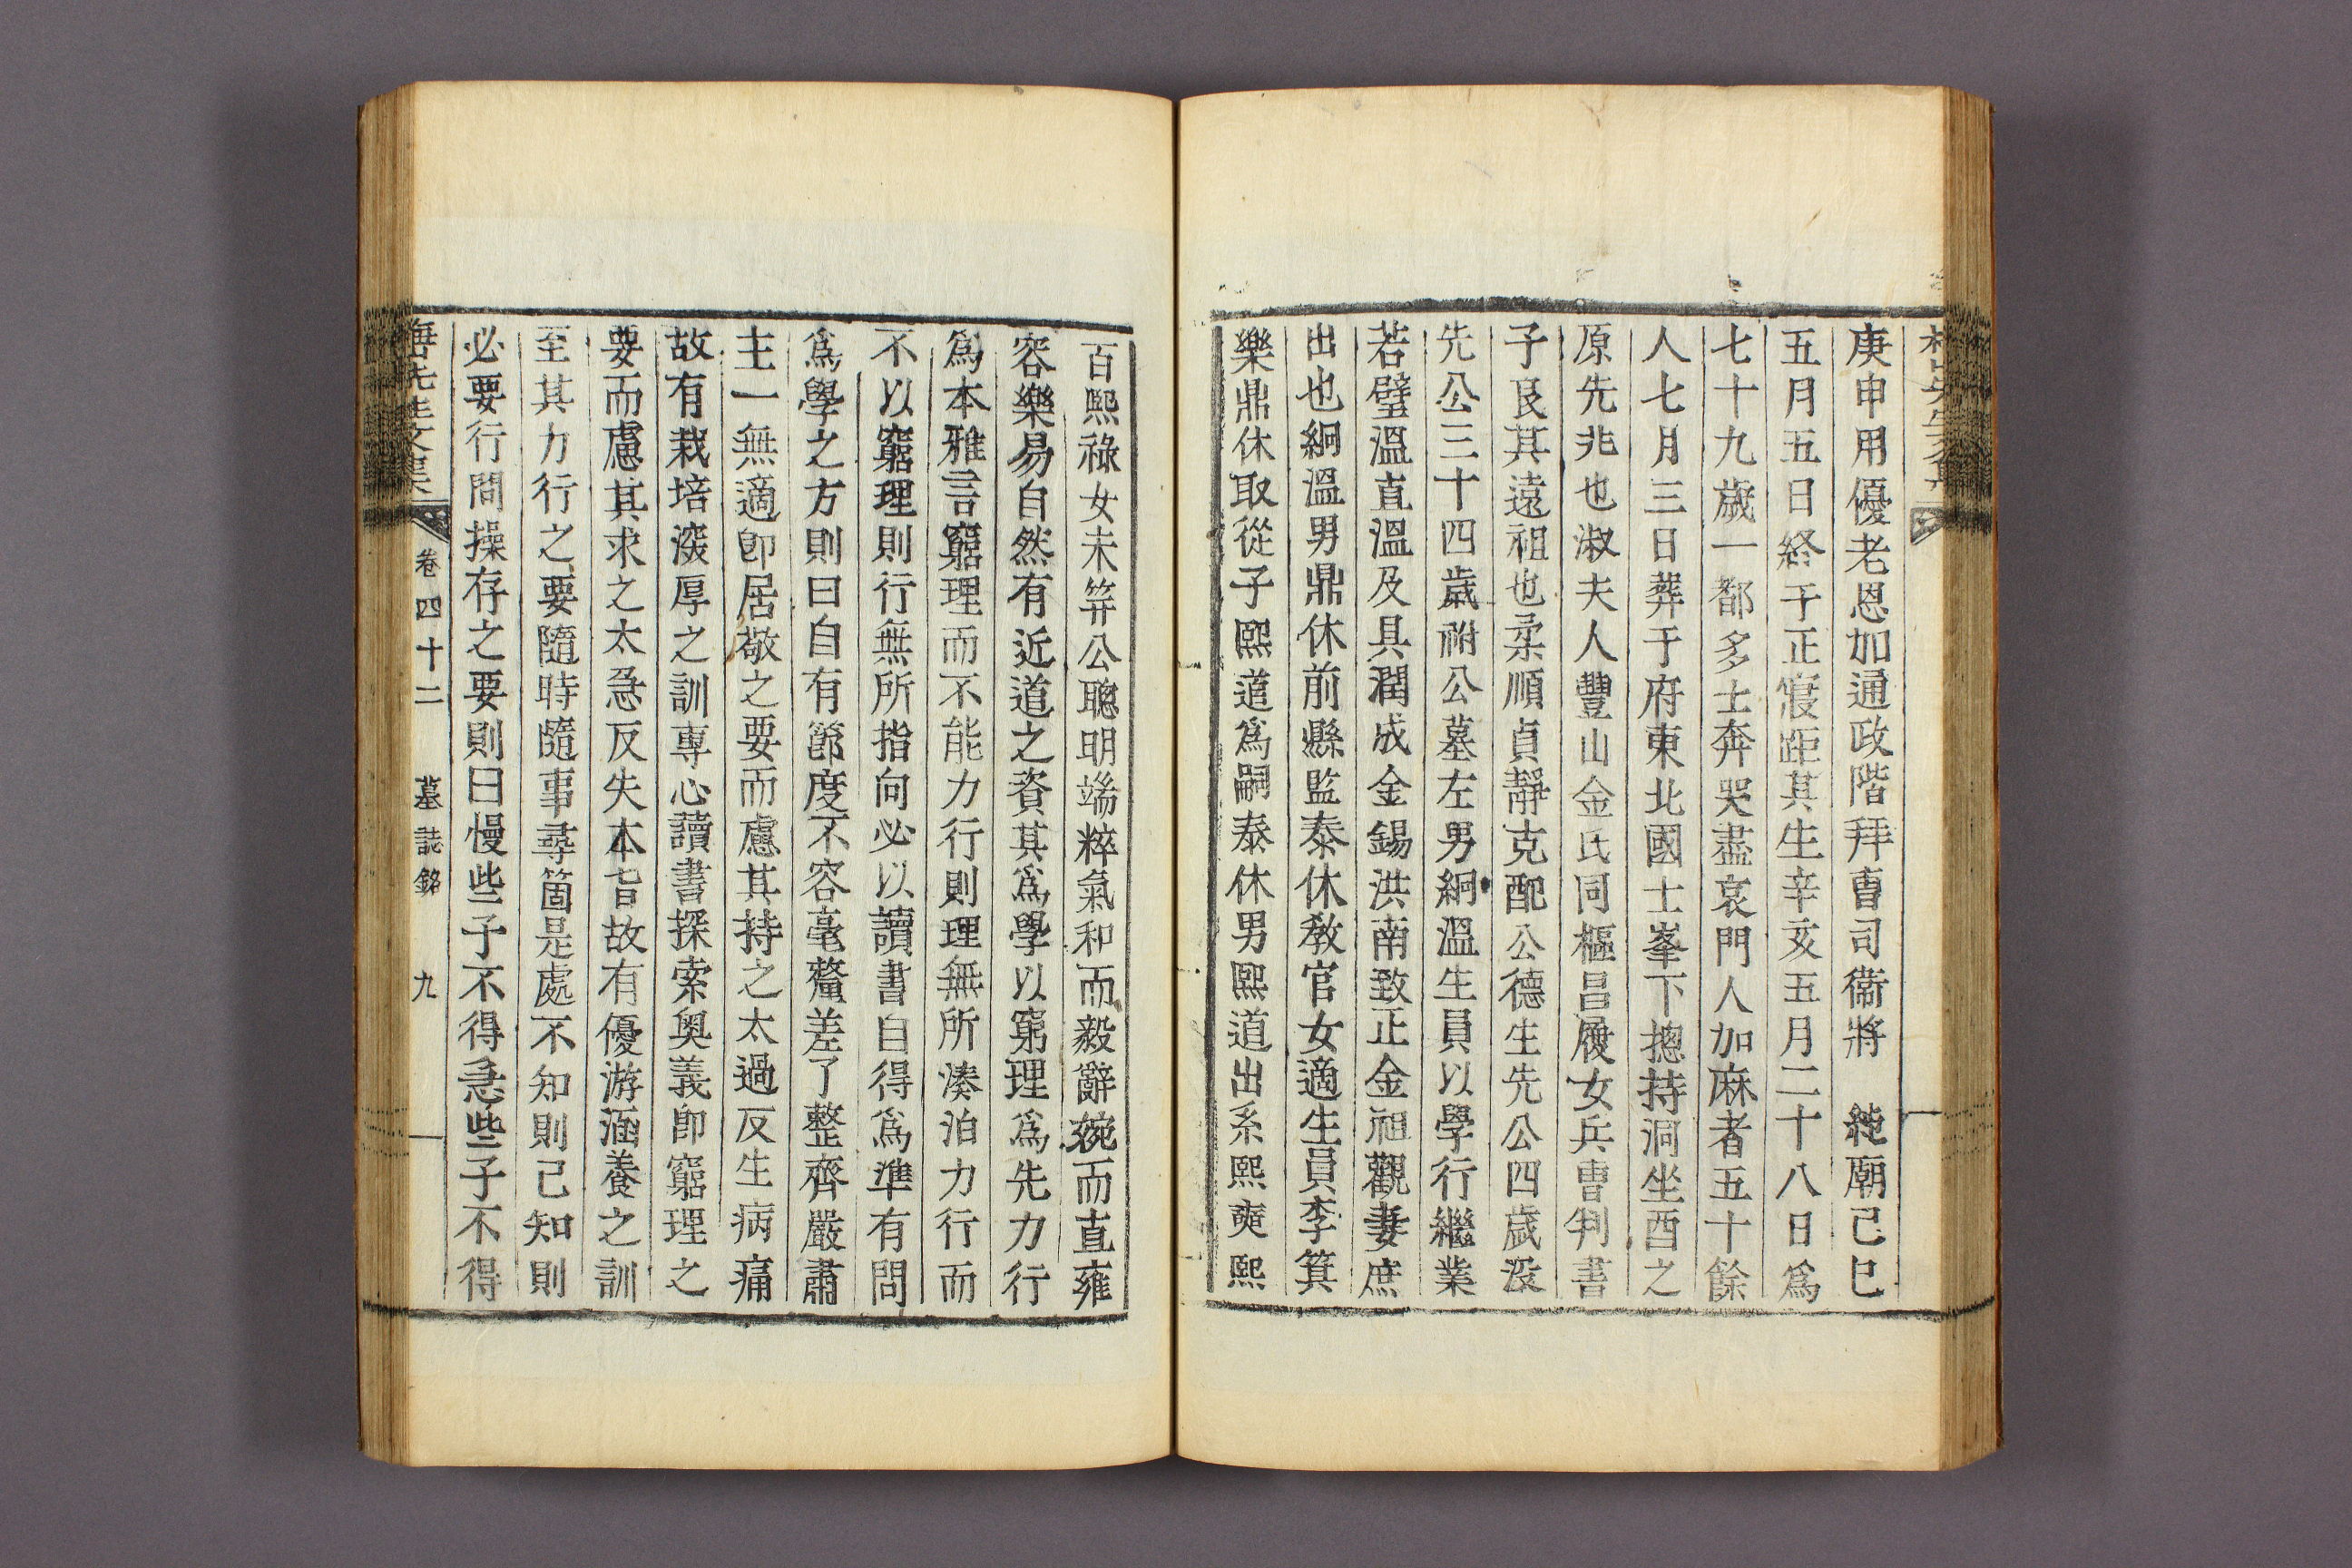 庚申用優老恩加通政階拜曺司衛將　純廟己巳
五月五日終于正寢距其生辛亥五月二十八日爲
七十九歲一都多士奔哭盡哀門人加麻者五十餘
人七月三日葬于府東北國士峯下摠持洞坐酉之
原先兆也淑夫人豐山金氏同樞昌履女兵曹判書
子良其遠祖也柔順貞靜克配公德生先公四歲沒
先公三十四歲祔公墓左男絅溫生員以學行繼業
若璧溫直溫及具潤成金錫洪南致正金祖觀妻庶
出也絅溫男鼎休前縣監泰休敎官女適生員李箕
樂鼎休取從子熙道爲嗣泰休男熙道出系熙奭熙
百熙祿女未筓公聰明端粹氣和而毅辭婉而直雍
容樂易自然有近道之資其爲學以窮理爲先力行
爲本雅言窮理而不能力行則理無所湊泊力行而
不以窮理則行無所指向必以讀書自得爲準有問
爲學之方則曰自有節度不容毫釐差了整齊嚴肅
主一無適卽居敬之要而慮其持之太過反生病痛
故有栽培深厚之訓專心讀書探索奧義卽窮理之
要而慮其求之太急反失本旨故有優游涵養之訓
至其力行之要隨時隨事尋箇是處不知則已知則
必要行問操存之要則曰慢些子不得急些子不得
先生文集　卷四十二　墓誌銘　九